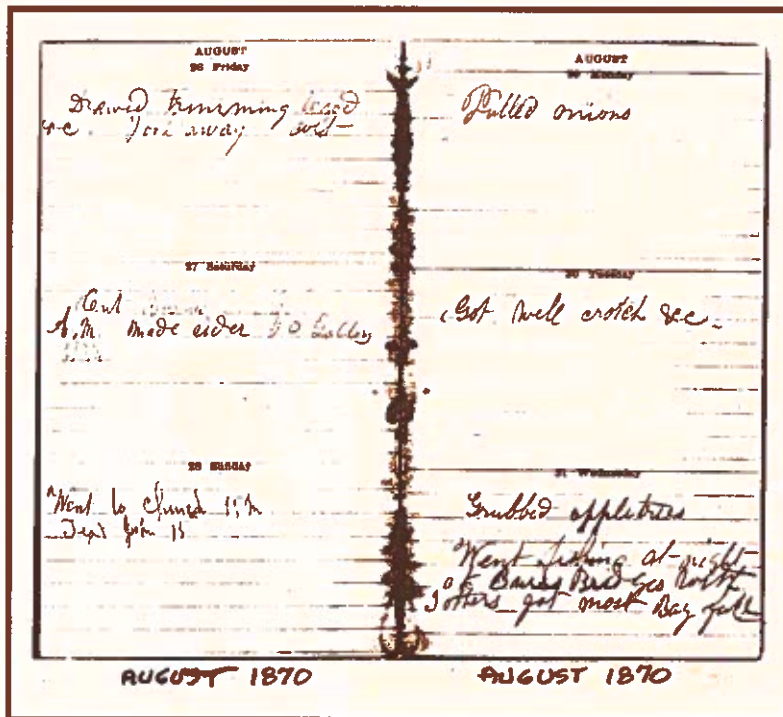 AUGUST
26 Friday
Drawed trimming
&c away
27 Saturday
Cut
A.M. made cider 50 Gallons
28 Sunday
Went to
Text John 15
AUGUST 1870
AUGUST
29 Monday
Pulled onions
30 Tuesday
Got well crotch &c
31 Wednesday
Grubbed appletrees
Went fishing at night
to Bares Bridge North
got most Bag full
AUGUST 1870